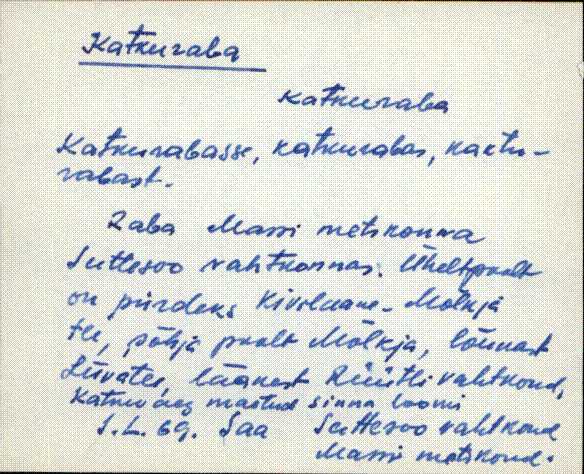 Katkuraba
katkuraba
Katkurabasse, katkurabas, kaktu-
rabast.
Raba Massi metskonna
Suttesoo vahtkonnas. Üheltpoolt
on piirdeks Kiviloane-Mõlkja
tee, põhja poolt Mõlkja, lõunast
Liivatee, läänest Rüütli vahtkond,
Katku aeg maetud sinna loomi
S.L. 69. Saa Suttesoo vahtkond
Massi metskond.